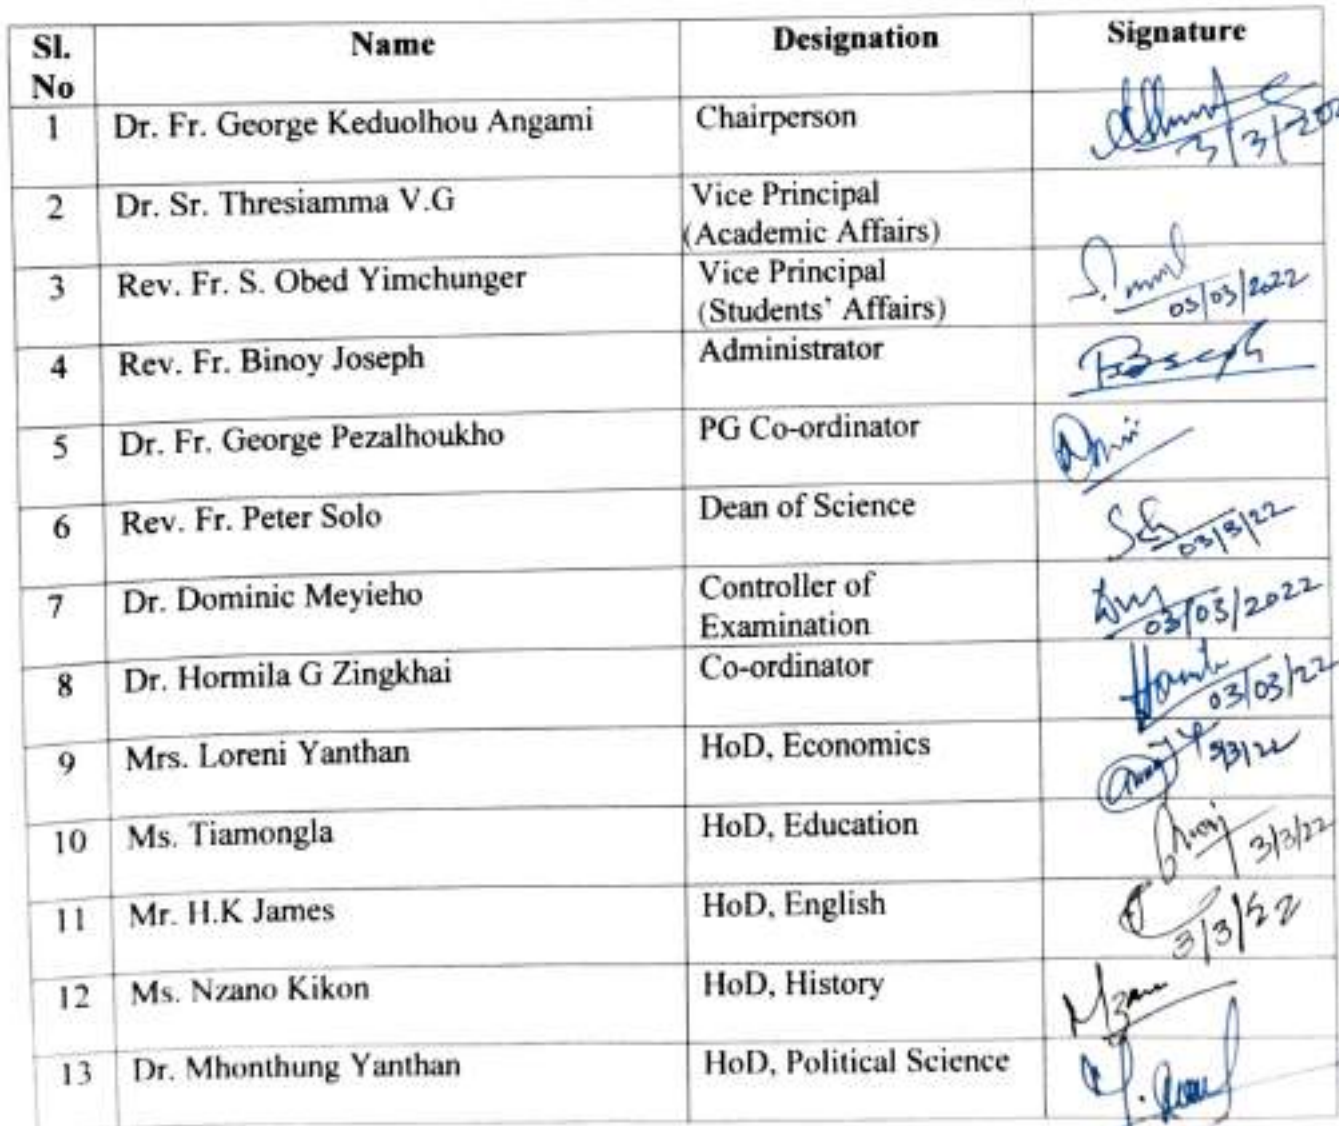 Sl. No Name Designation Signature
1 Dr. Fr. George Keduolhou Angami Chairperson 3/3/202
2 Dr. Sr. Thresiamma V.G Vice Principal
(Academic Affairs)
3 Rev. Fr. S. Obed Yimchunger Vice Principal
(Students' Affairs) 03/03/2022
4 Rev. Fr. Binoy Joseph Administrator
5 Dr. Fr. George Pezalhoukho PG Co-ordinator
6 Rev. Fr. Peter Solo Dean of Science 03/3/22
7 Dr. Dominic Meyieho Controller of
Examination 03/03/2022
8 Dr. Hormila G Zingkhai Co-ordinator 03/03/22
9 Mrs. Loreni Yanthan HoD, Economics 3/3/22
10 Ms. Tiamongla HoD, Education 3/3/22
11 Mr. H.K James HoD, English 3/3/22
12 Ms. Nzano Kikon HoD, History
13 Dr. Mhonthung Yanthan HoD, Political Science